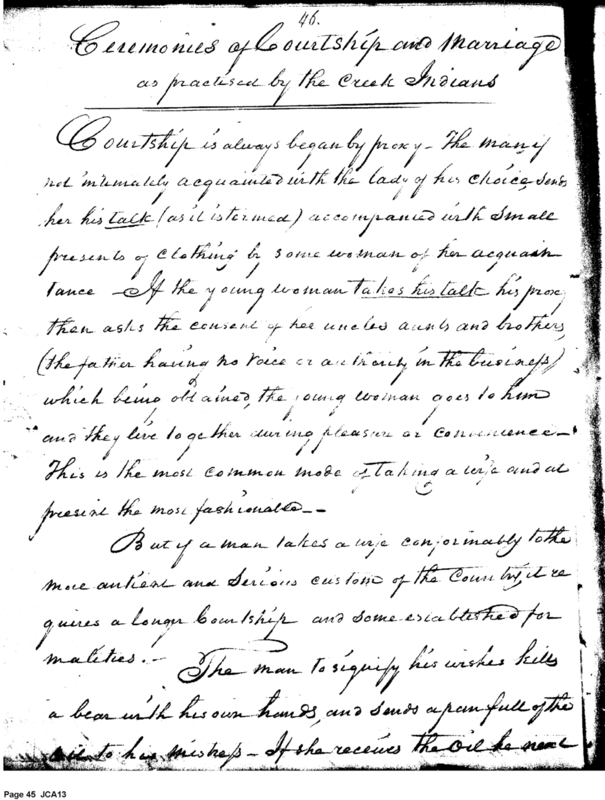 46.
Ceremonies of Courtship and Marriage
as practised by the Creek Indians
Courtship is always began by proxy - The man if
not intimately acquainted with the lady of his choice, sends
her his talk (as it is termed) accompanied with small
presents of clothing by some woman of her acquain
tance - If the young woman takes his talk his proxy
then asks the consent of her uncles aunts and brothers,
(the father having no voice or authority in the business)
which being obtained, the young woman goes to him
and they live together during pleasure or convenience -
This is the most common mode of taking a wife and at
present the most fashionable --
But if a man takes a wife conformably to the
more antient and serious custom of the Country, it re
quires a longer Courtship and some established for
malities. - The man to signify his wishes kills
a bear with his own hands, and sends a pan full of the
oil to his mistress - If she receives the oil he next
Page 45 JCA13